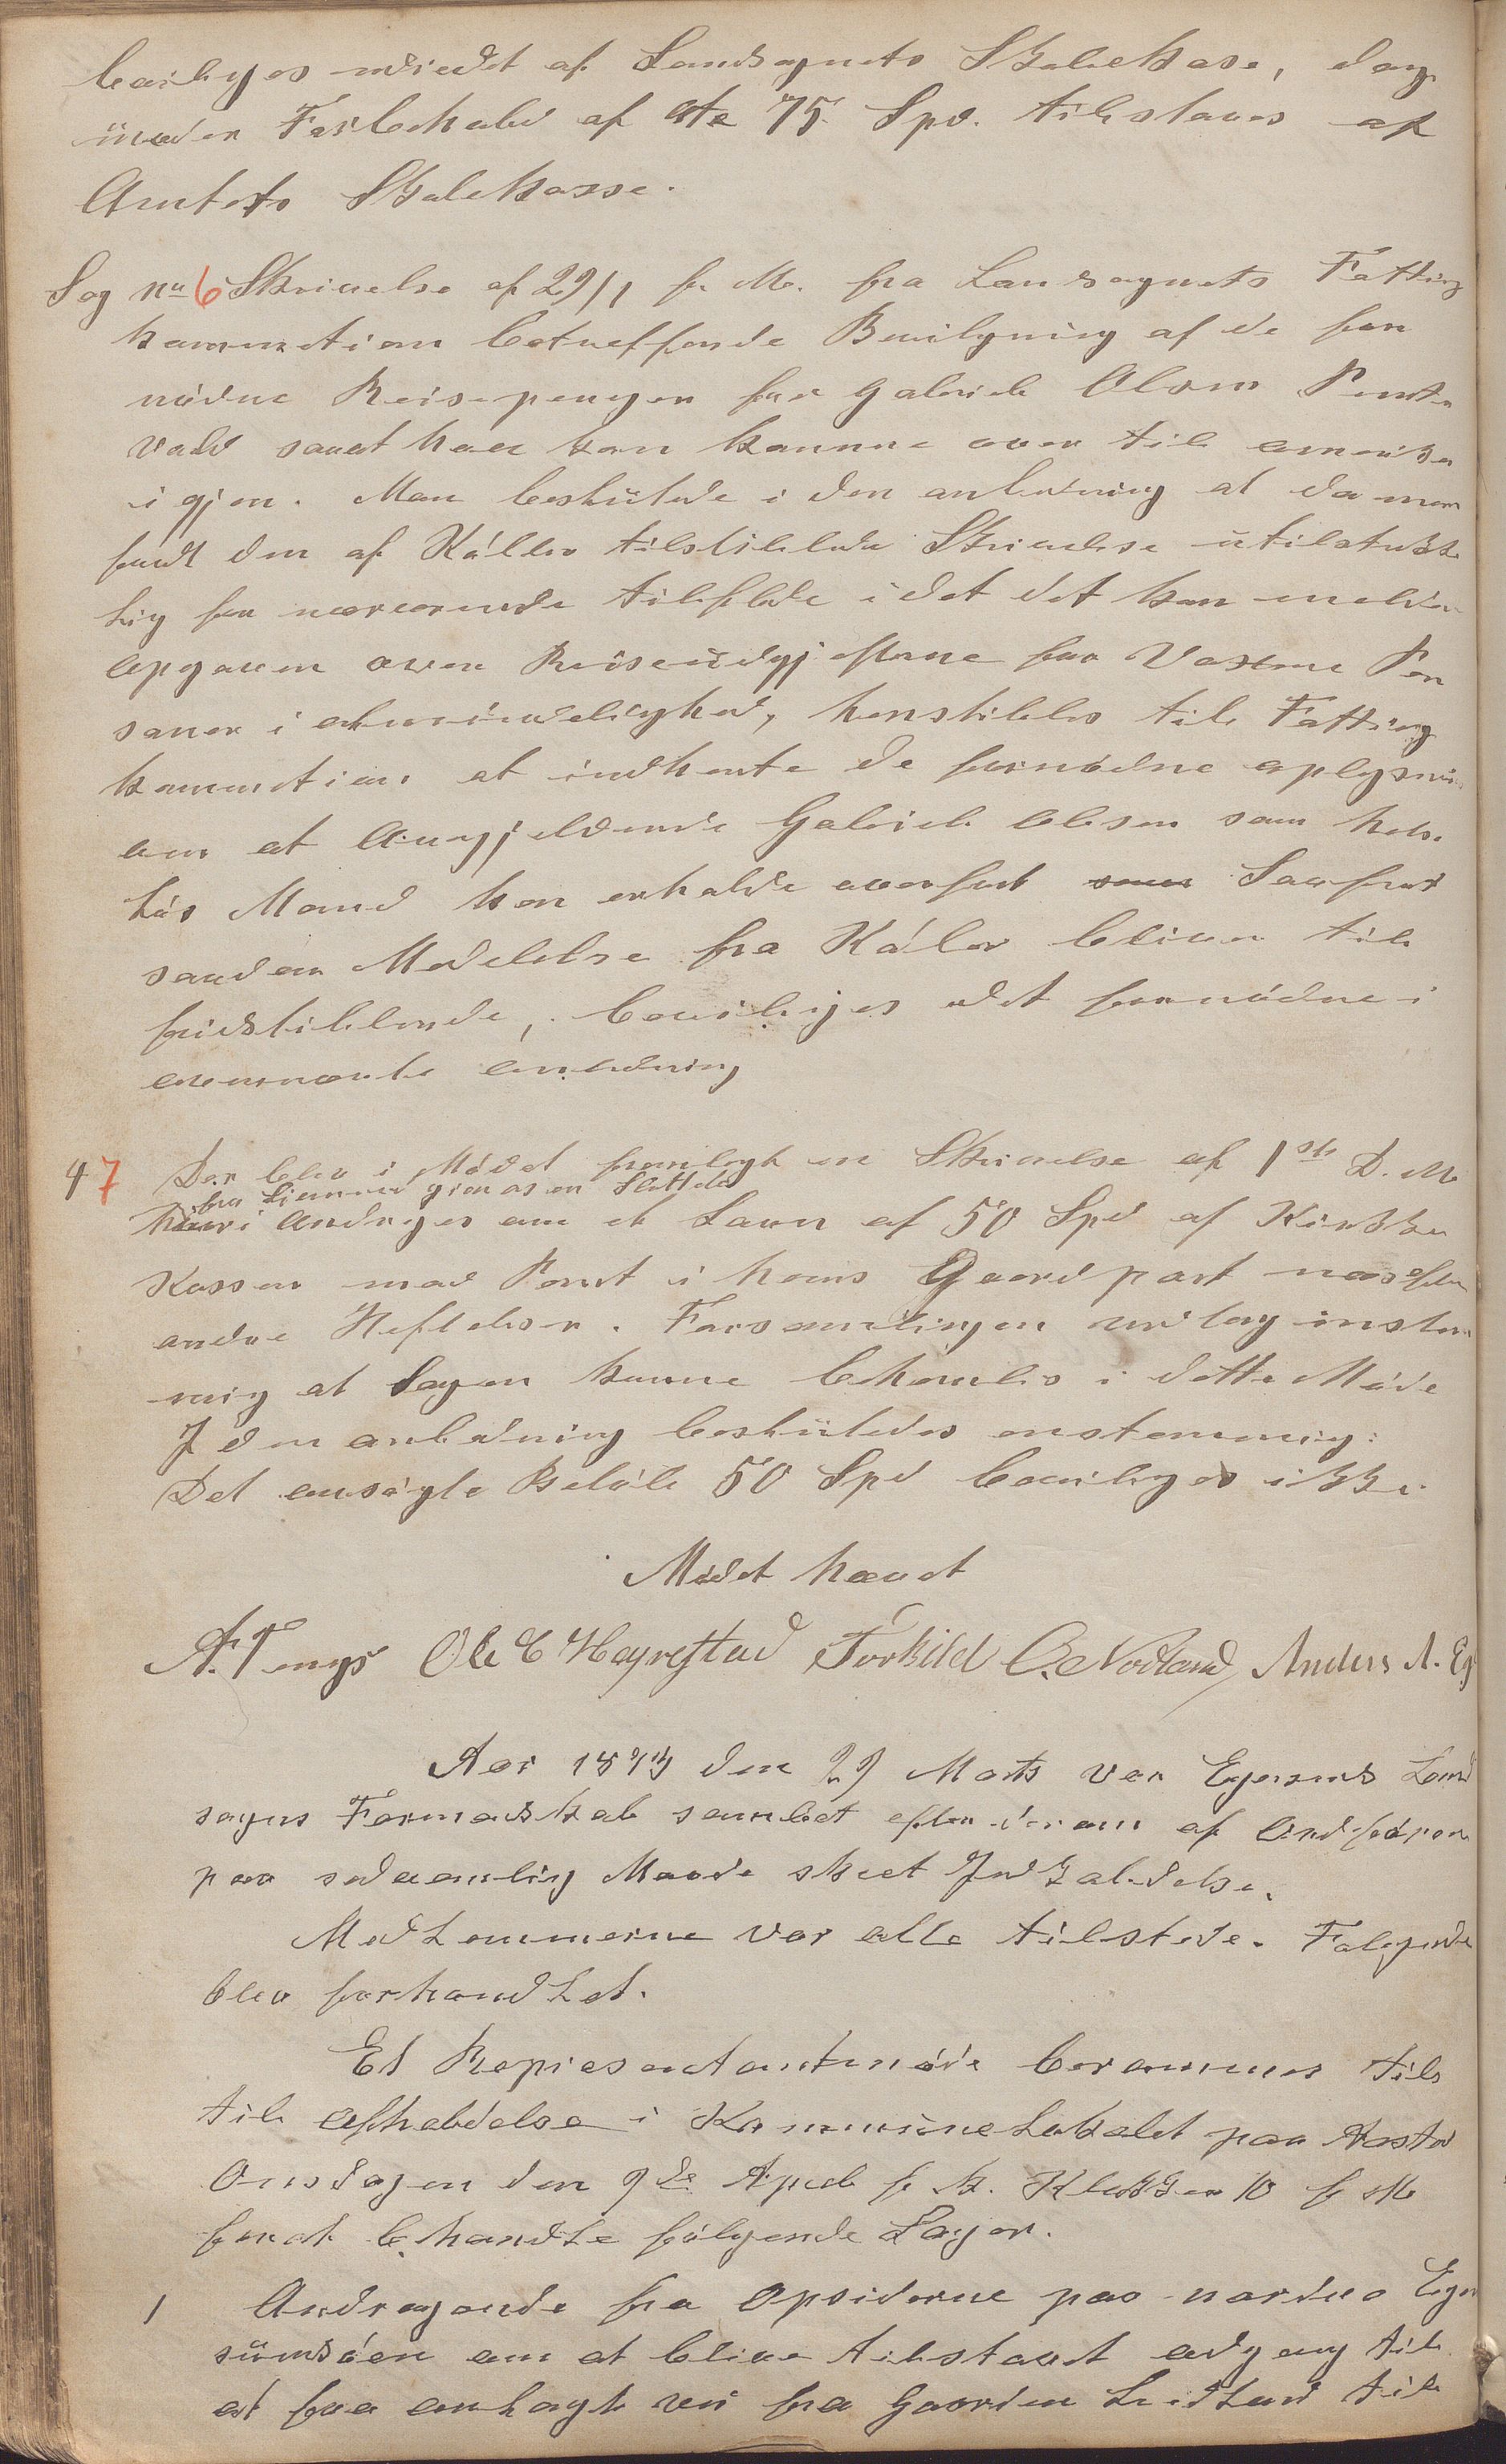 bevilges udredet af Landsognets Skolekase, dog
under Forbehold af at 75 Spd. tilstaaes af
Amtets Skolekasse.
Sag no 6 Skrivelse af 29/1 f. M. fra Landsognets Fattig
kommission betreffende Bevilgning af de for
nødne Reisepenger for Gabriel Olsen
vold samt han kan komme over til amerika
igjen. Man besluttede i den anledning at da man
fandt den af Káller tilstillede Skrivelse utilstrække
lig for nærværende tilfælde idet det kun melder
opgaven over Reiseudgifterne for Voxne Per
soner i almindelighed, henstilles til Fattig
kommission at indhente de fornødne oplysning
om at Angjeldende Gabriel Olsen som
løs Mand kan erholde overfart Saafremt
saadan Meddelelse fra Káler bliver til
fridstillende, bevilges det fornødne i
ovennævnte anledning
47 Der blev i Mødet fremlagt en Skrivelse af 1ste D. M.
fra
hvori Andrages om et Laan af 50 Spd af Kirke
Kassen mod Pant i hans Gaardpart næst efter
andre Heftelser. Forsamlingen vedtog enstem
mig at Sagen kunne behandles i dette Møde
I den anledning besluttedes enstemmig:
Det ansøgte Beløb 50 Spd bevilges ikke.
Mødet hævet
A. Tengs Ole C Hegrestad Torkild O. Nodland Anders A. Eg
Aar 1873 den 29 Marts var Egersunds Land
sogns Formandskab samlet efter derom af Ordføreren
paa sedvanlig Maade skeet Indkaldelse.
Medlemmerne var alle tilstede. Følgende
blev forhandlet.
Et Representantmøde berammes til
til Afholdelse i Kommunelokalet paa
Onsdagen den 9de April f. k. Klokken 10 f M
forat behandle følgende Sager.
1 Andragende fra Opsiderne paa nordre Eger
sundsøen om at blive tilstaaet adgang til
at faa anlagt vei fra Gaarden til